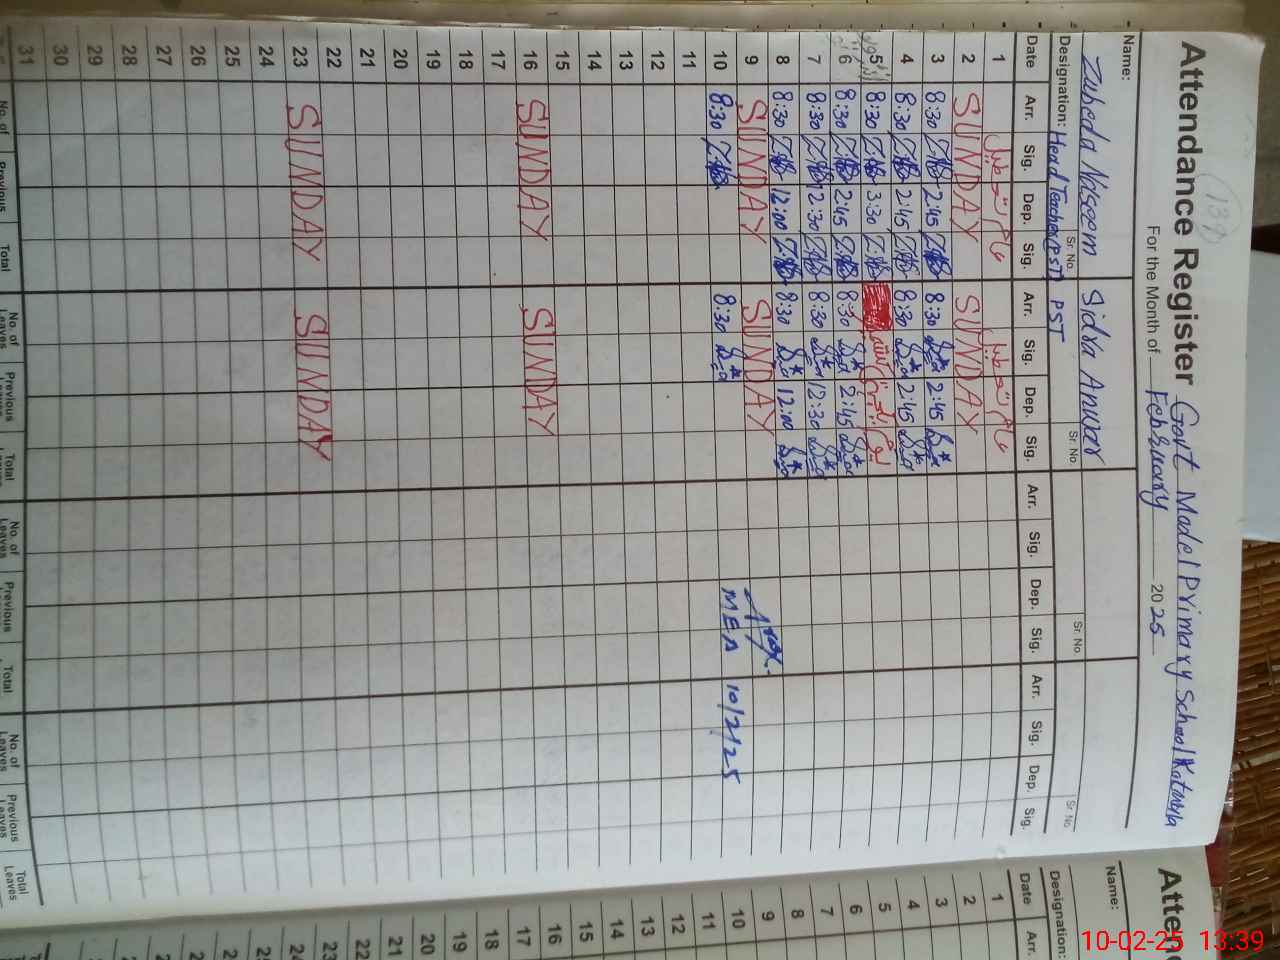 Attendance Register Govt Model Primary School
For the Month of February 2025
Name: Zubeda Naseem Sidra Anwar
Designation: Head Teacher (PST) Sr. No. PST Sr. No. Sr. No. Sr. No
Date Arr. Sig. Dep. Sig. Arr. Sig. Dep. Sig. Arr. Sig. Dep. Sig. Arr. Sig. Dep. Sig.
1
2 SUNDAY SUNDAY
3 8:30 2:45 8:30 2:45
4 8:30 2:45 8:30 2:45
5 8:30 3:30
6 8:30 2:45 8:30 2:45
7 8:30 12:30 8:30 12:30
8 8:30 12:00 8:30 12:00
9 SUNDAY SUNDAY
10 8:30 8:30 MEA 10/2/25
11
12
13
14
15
16 SUNDAY SUNDAY
17
18
19
20
21
22
23 SUNDAY SUNDAY
24
25
26
27
28
29
30
31
No. of Previous Total No. of Leaves Previous Leaves Total Leaves No. of Leaves Previous Leaves Total No. of Leaves Previous Leaves Total Leaves
Atten
Name:
Designation:
Date Arr.
1
2
3
4
5
6
7
8
9
10
11
12
13
14
15
16
17
18
19
20
21
22
23
24
10-02-25 13:39